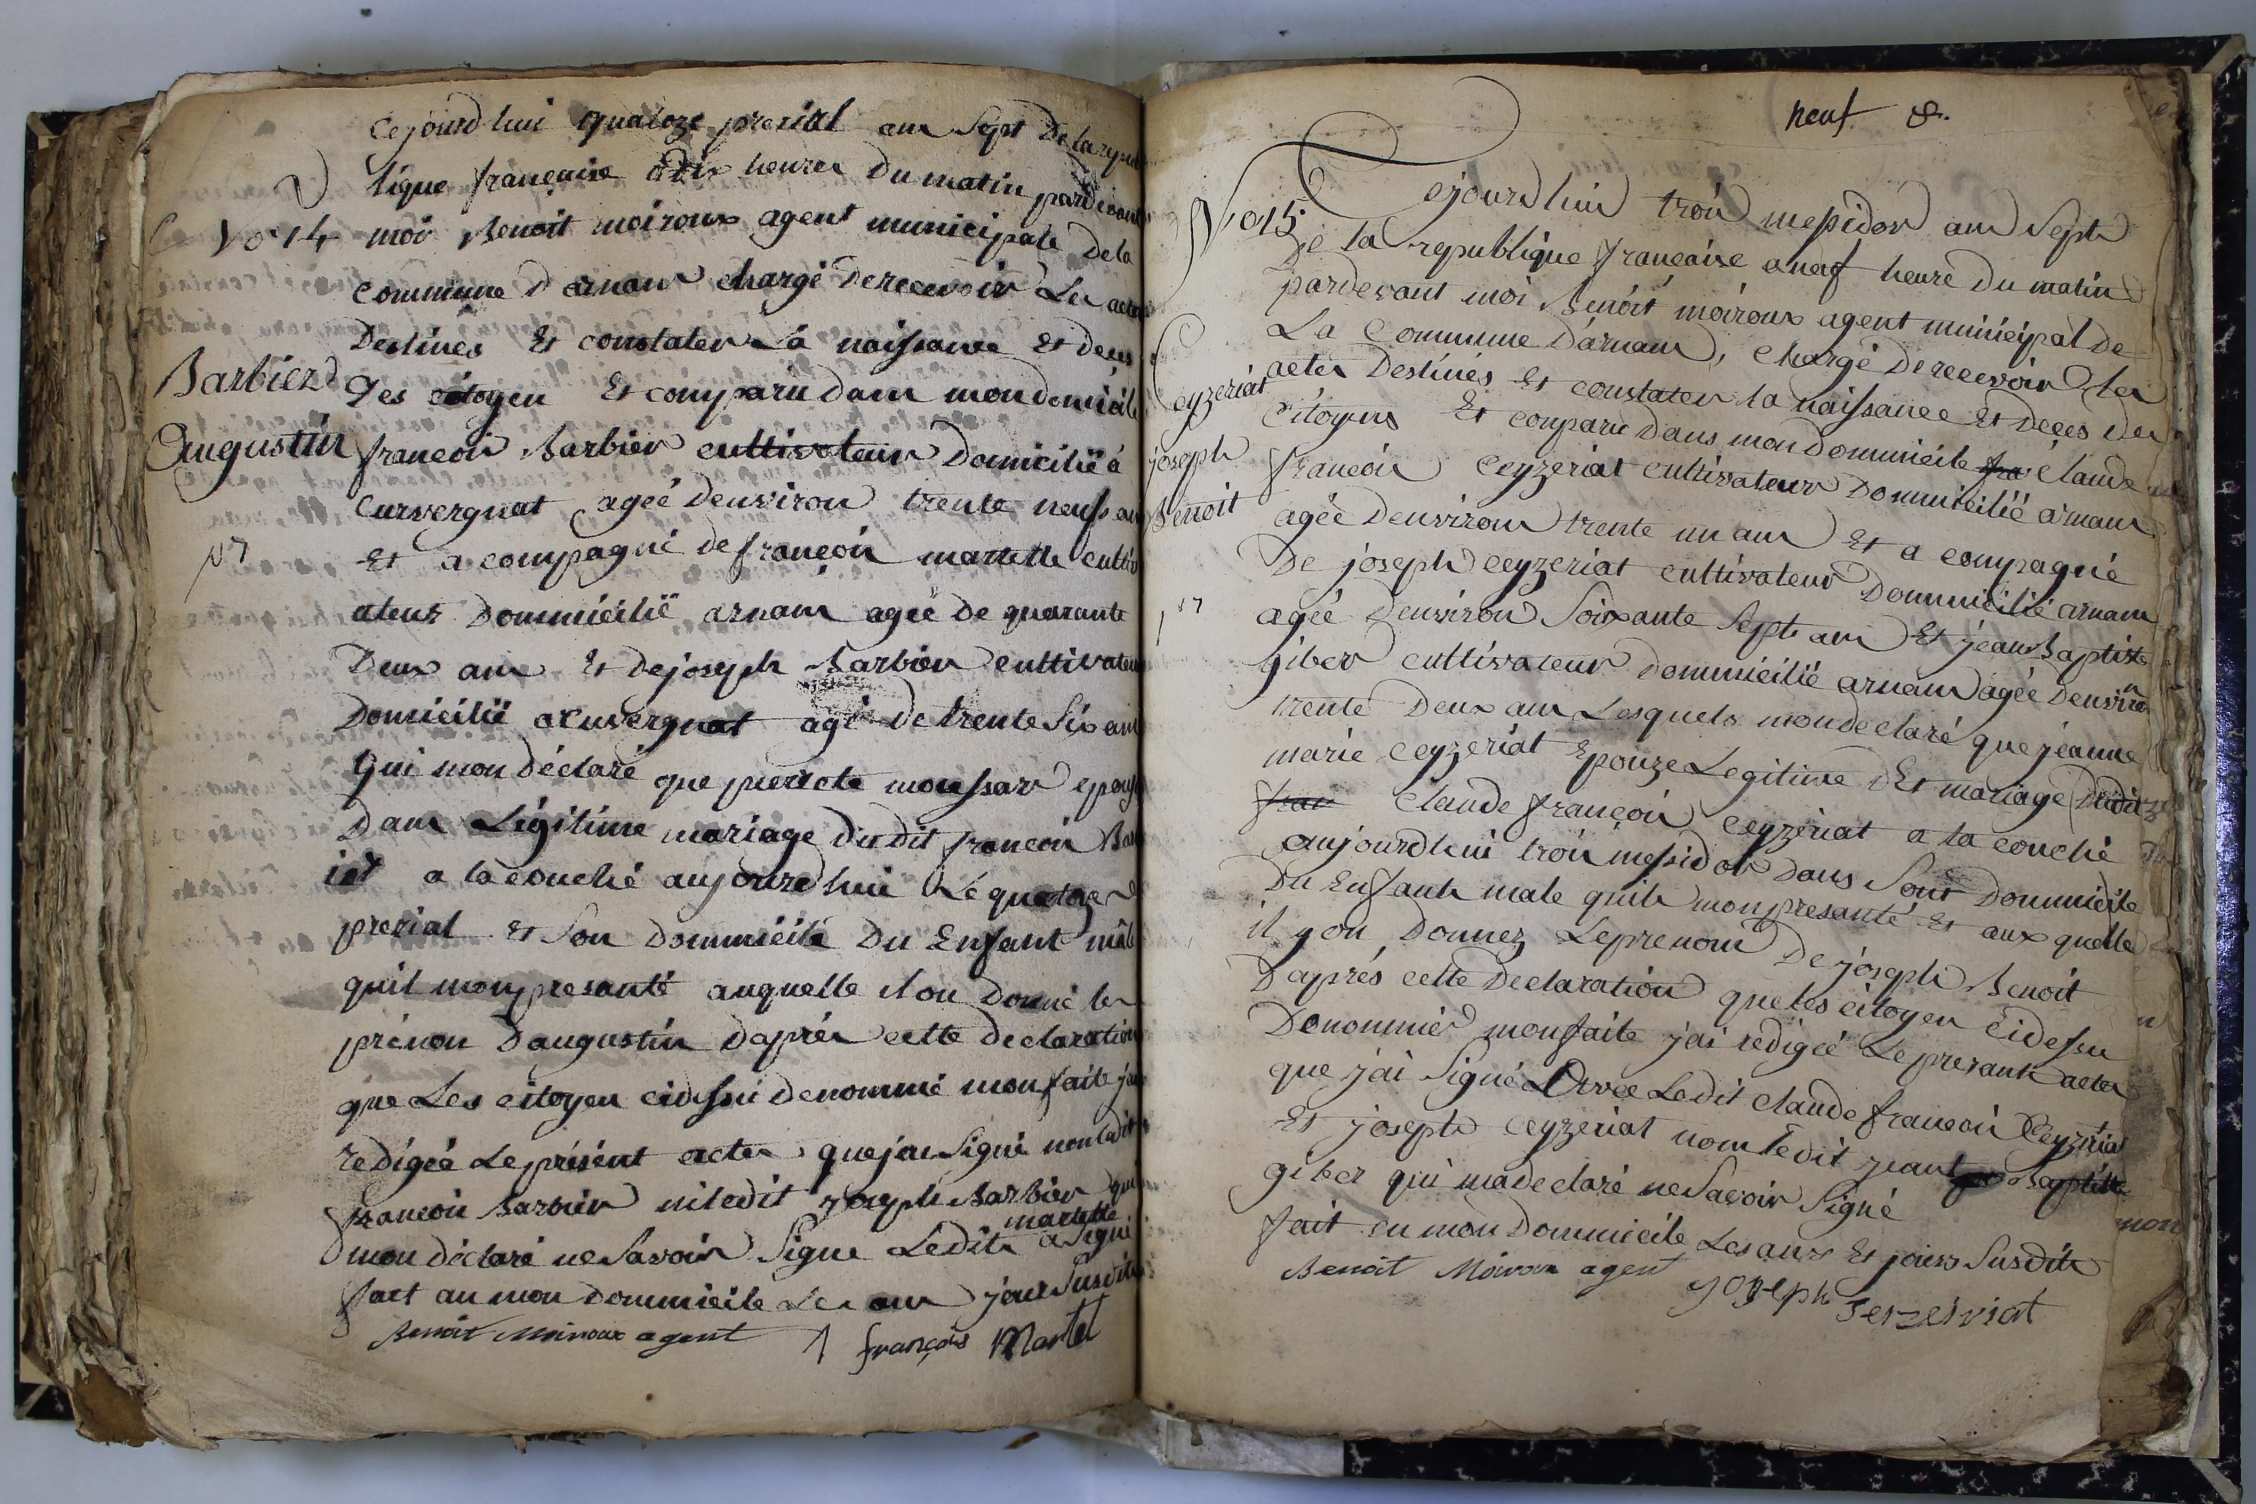 Cejourd hui quatoze prerial ans Sept De la repu
blique francaise a dix heures Du matin pardevant
No 14 moi Benoit moiroux agent municipale De la
Commune d arnans chargé De recevoir Les actes
Destinés Et constater La naissance Et deces
Barbier Des citoyen Et comparu dans mon domicile
Augustin francois Barbier cultivateur Domicilié à
Curvergnat ageé denviron trente neuf ans
N
Et a compagné de françois martelle cultiv
ateur Dommicilié arnans ageé De quarante
Deux ans Et de joseph Barbier cultivateur
Domicilié a Cuvergnat agé de trente Six ans
Qui mon déclaré que pierrote moussar epouse
Dans Légitime mariage du dit francois Bar
ier a la couché aujourd hui Le quatoze
prerial Et Son Dommicile Du Enfant mâle
quil mon presanté auquelle il on Donné le
prénon Daugustin Daprés cette declaration
que Les citoyen cidessu denommé mon faite jai
redigéé Le présent actes que jai Signé non ledit
francois Barbier ni ledit joseph Barbier qui
mon déclaré ne Savoir Signe Ledit martelle a Signé
fait au mon Dommicile Les ans jour Susdits
Benoit Moiroux agent francois Martel
neuf &.
No 15. Cejourd hui trois messidor ans Sept
De la republique francaise a neuf heure Du matin
pardevant moi Benoit moiroux agent municipal De
La Commune Darnans, chargé De recevoir les
actes Destinés Et constater la naissance Et Deces Des
Ceyzeriat
joseph
Benoit
Citoyens Et conparu Dans mon Dommicile fra Claude
francois Ceyzeriat cultivateur Dommicilié arnans
agéé Denviron trente un ans Et a compagné
De joseph ceyzeriat cultivateur Dommicilié arnans
agéé Denviron Soixante Sept ans Et jean Baptiste
giber cultivateur dommicilié arnans agéé Denviron
trente Deux ans Lesquels mon declaré que jeanne
marie ceyzeriat Epouze Legitime Et mariage Dudit
fran Claude françois ceyzeriat a la couché
aujourdhui trois messidor Dans Sont Dommicile
Du Enfant male quils mon presanté Et aux quelle
il yon Donnez Le prenom De joseph Benoit
Daprés cette Declaration que les citoyen cidessu
Donommié mon faite jai redigéé Le presant actes
que jai Signé Avec Ledit claude francois Ceyzeriat
Et joseph ceyzeriat nom Ledit jeant Baptiste
giber qui ma declaré ne Savoir Signé
fait en mon Dommicile Les ans Et jours Susdits
Benoit Moiroux agent
joseph Serzeiriat
non